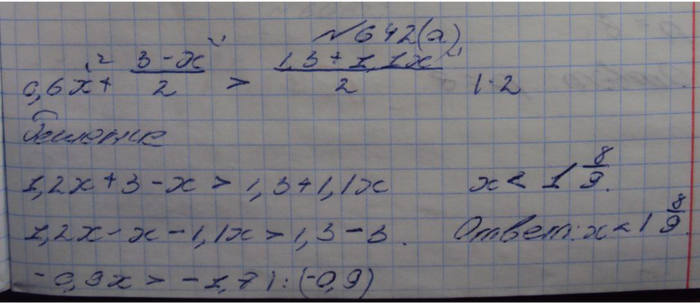 №642(а)
0,6x + (3-x)/2 > (1,3+1,1x)/2 |·2
Решение
1,2x+3-x > 1,3+1,1x
1,2x-x-1,1x > 1,3-3.
-0,9x > -1,7 |:(-0,9)
x < 1 8/9.
Ответ: x < 1 8/9.